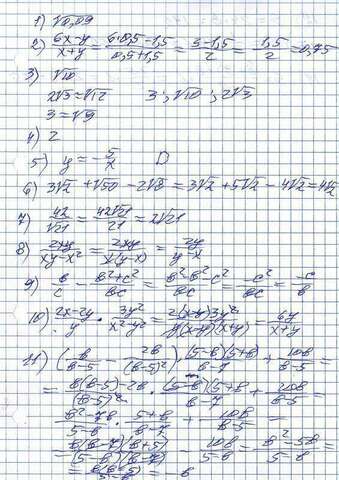 1) √0,09
2) (6x-y)/(x+y) = (6·0,5-1,5)/(0,5+1,5) = (3-1,5)/2 = 1,5/2 = 0,75
3) √10
2√3 = √12 3; √10; 2√3
3 = √9
4) 2
5) y = -5/x D
6) 3√2 + √50 - 2√8 = 3√2 + 5√2 - 4√2 = 4√2
7) 42/√21 = 42√21/21 = 2√21
8) 2xy/(xy-x²) = 2xy/(x(y-x)) = 2y/(y-x)
9) b/c - (b²+c²)/bc = (b²-b²-c²)/bc = -c²/bc = -c/b
10) (2x-2y)/y · 3y²/(x²-y²) = 2(x-y)3y²/(y(x-y)(x+y)) = 6y/(x+y)
11) (b/(b-5) - 2b/(b-5)²) · (5-b)(5+b)/(b-7) + 10b/(b-5) =
= (b(b-5)-2b)/(5-b)² · (5-b)(5+b)/(b-7) + 10b/(b-5) =
= (b²-7b)/(5-b) · (5+b)/(b-7) + 10b/(b-5) =
= b(b-7)(b+5)/((5-b)(b-7)) - 10b/(5-b) = (b²-5b)/(5-b) =
= -b